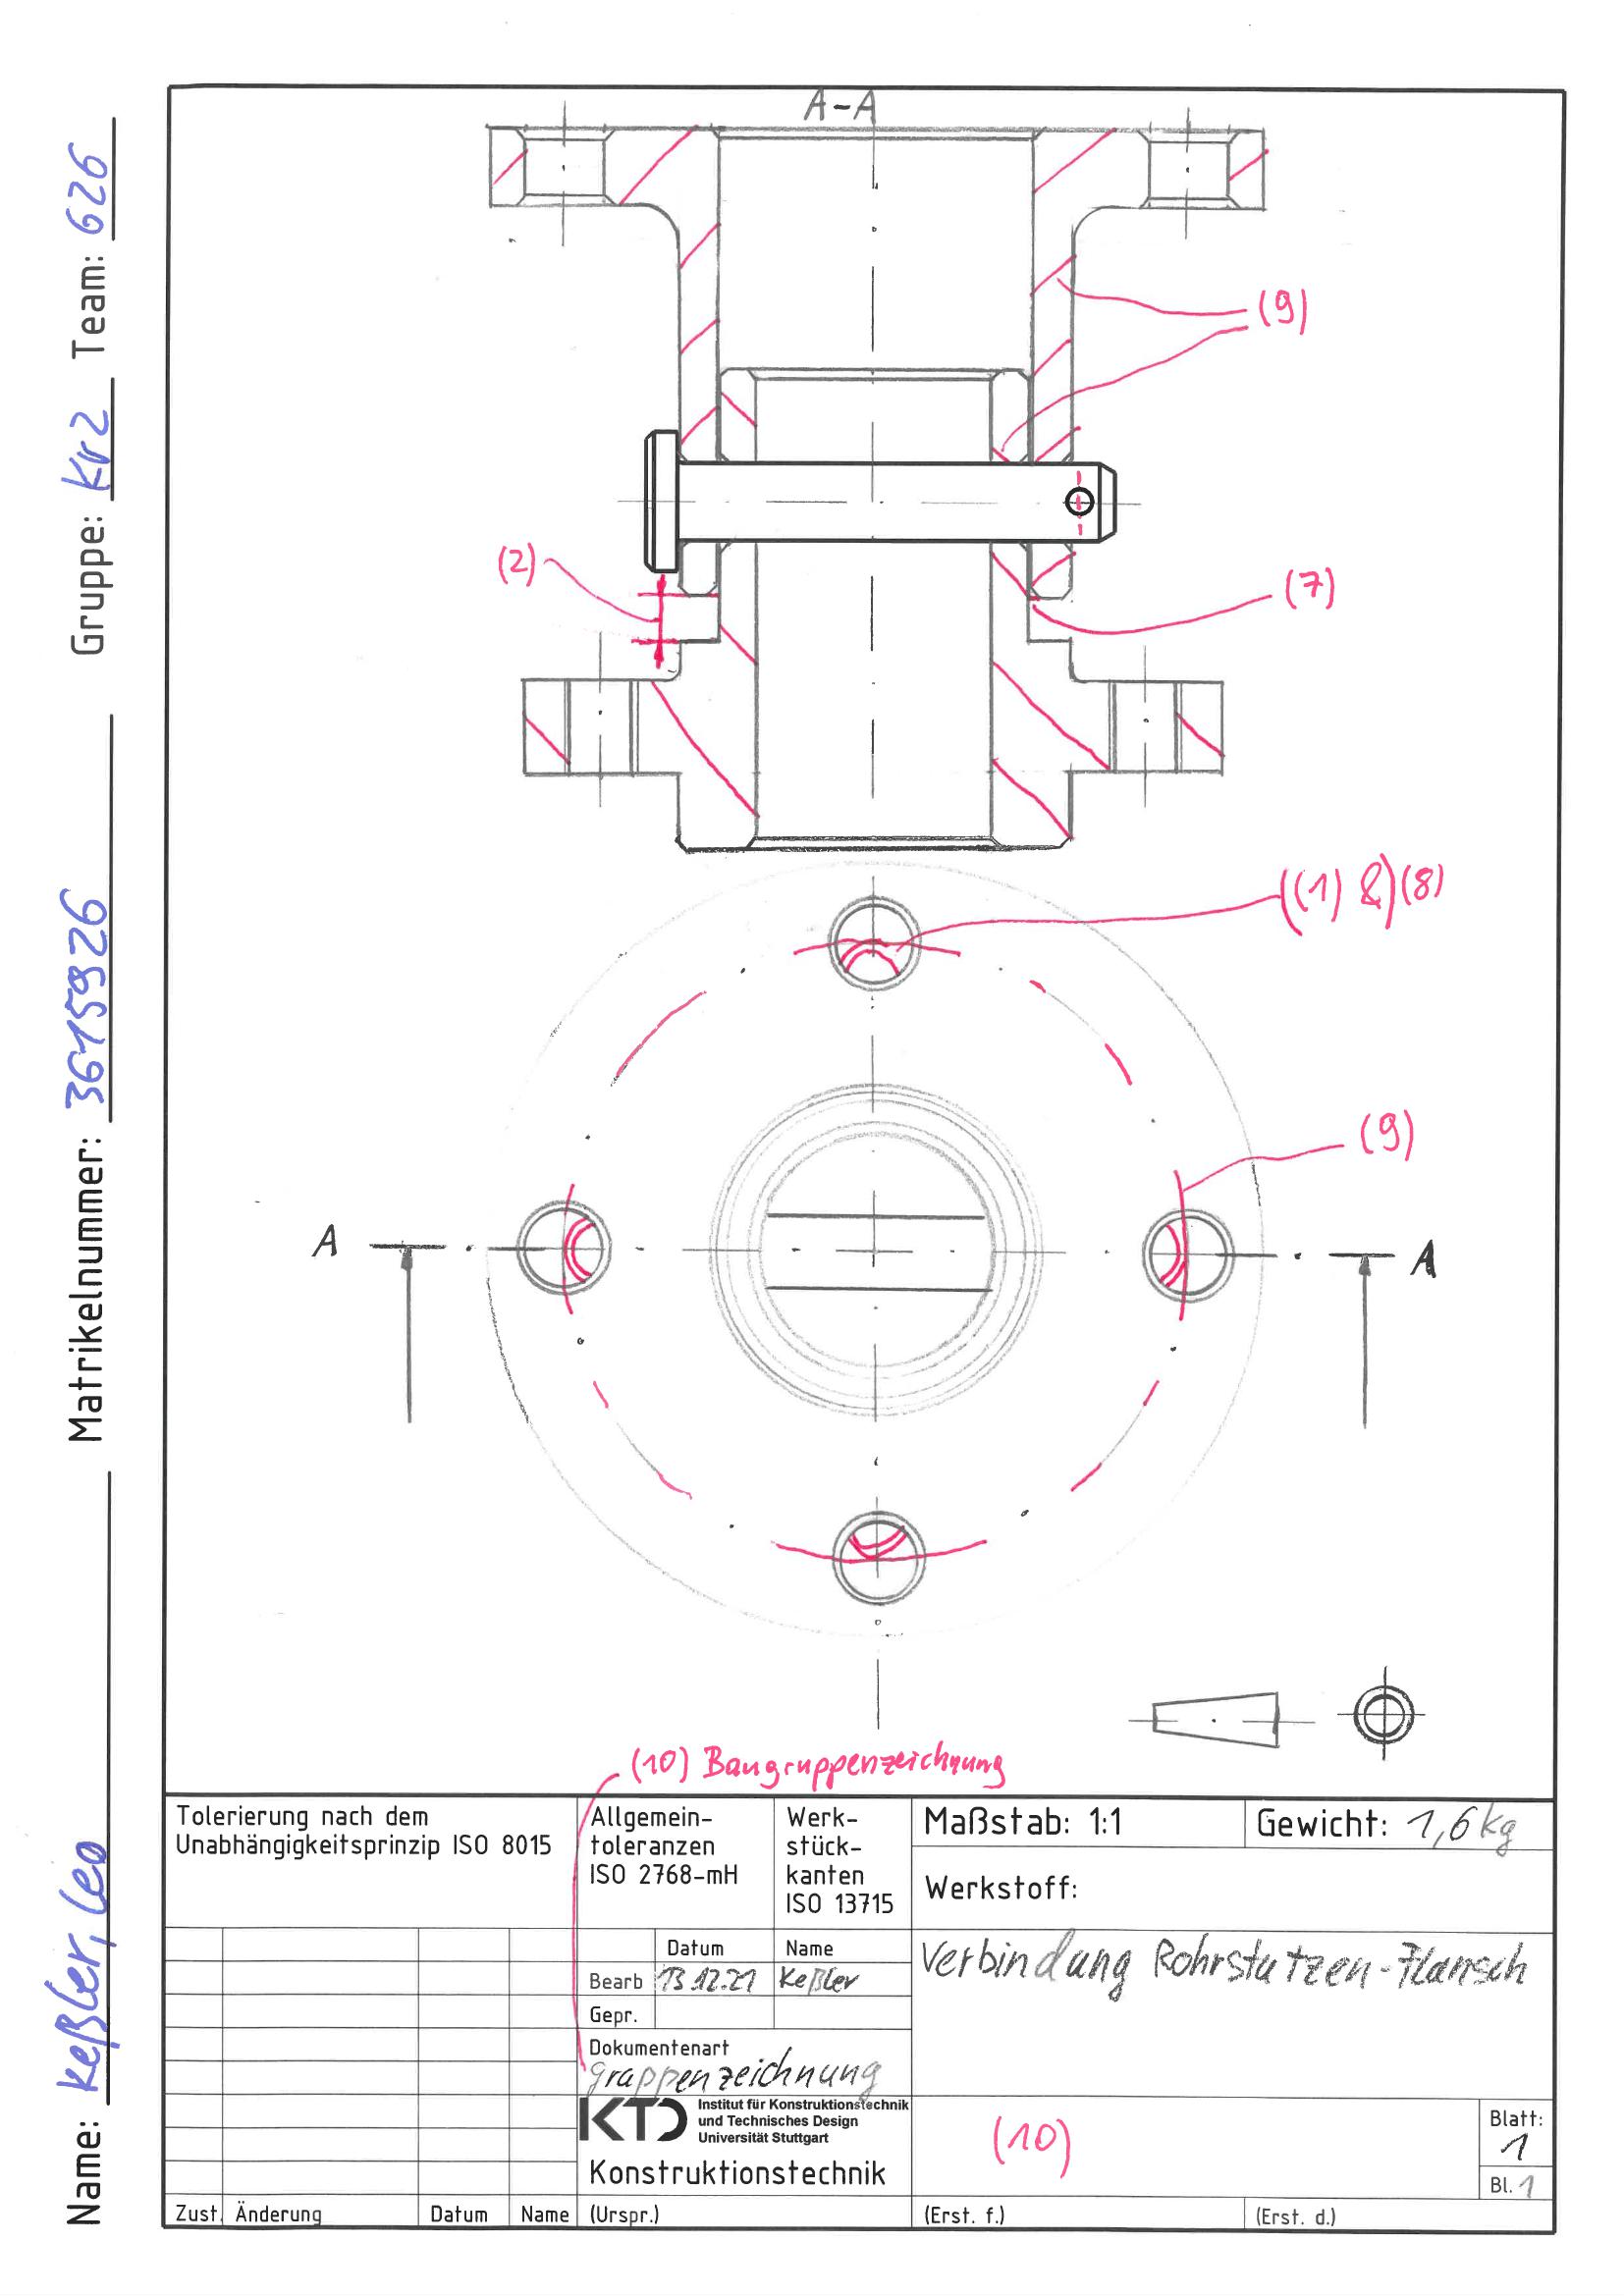 Name: Keßler, Leo Matrikelnummer: 3615926 Gruppe: Kr2 Team: 626
A-A
(9)
(2)
(7)
((1) &)(8)
(9)
A
A
(10) Baugruppenzeichnung
Tolerierung nach dem
Unabhängigkeitsprinzip ISO 8015
Allgemein-
toleranzen
ISO 2768-mH
Werk-
stück-
kanten
ISO 13715
Maßstab: 1:1
Gewicht: 1,6kg
Werkstoff:
Datum Name
Bearb 13.12.21 Keßler
Gepr.
Verbindung Rohrstutzen-Flansch
Dokumentenart
gruppenzeichnung
KTD Institut für Konstruktionstechnik
und Technisches Design
Universität Stuttgart
Konstruktionstechnik
(10)
Blatt:
1
Bl. 1
Zust. Änderung Datum Name (Urspr.) (Erst. f.) (Erst. d.)